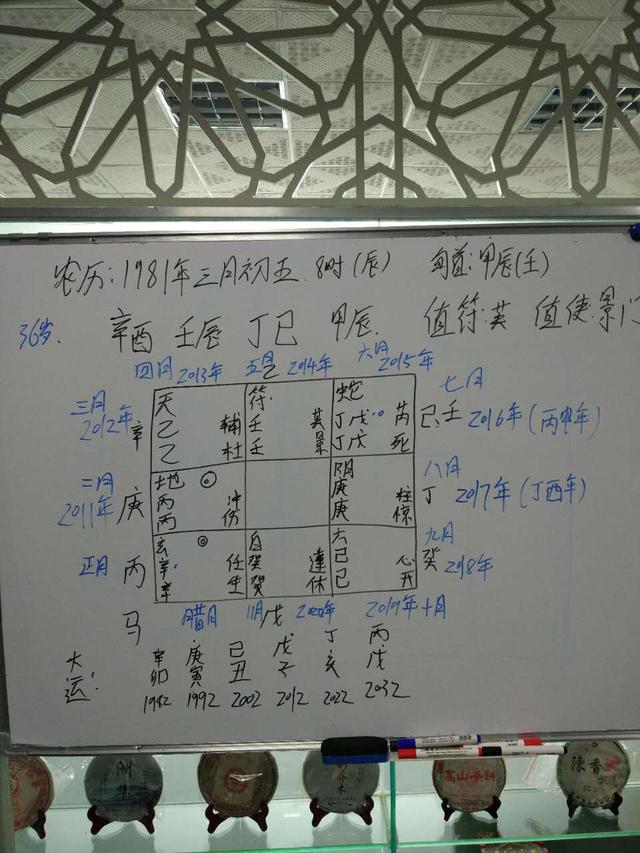 农历:1981年三月初五 8时(辰) 旬首:甲辰(壬)
36岁. 辛酉 壬辰 丁巳 甲辰. 值符:英 值使:景门
四月 2013年 五月 2014年 六月 2015年
三月 2012年 辛
天 乙 乙 辅 杜
符 壬 壬 英 景
蛇 丁戊 丁戊 芮 死
七月 己壬 2016年(丙申年)
二月 2011年 庚
地 丙 丙 冲 伤
阴 庚 庚 柱 惊
八月 丁 2017年(丁酉年)
正月 丙
玄 辛 辛 任 生
白 癸 癸 蓬 休
六 己 己 心 开
九月 癸 2018年
马 腊月 11月 戊 2020年 2019年十月
大运: 辛卯 庚寅 己丑 戊子 丁亥 丙戌
1982 1992 2002 2012 2022 2032
高山茶
陈香